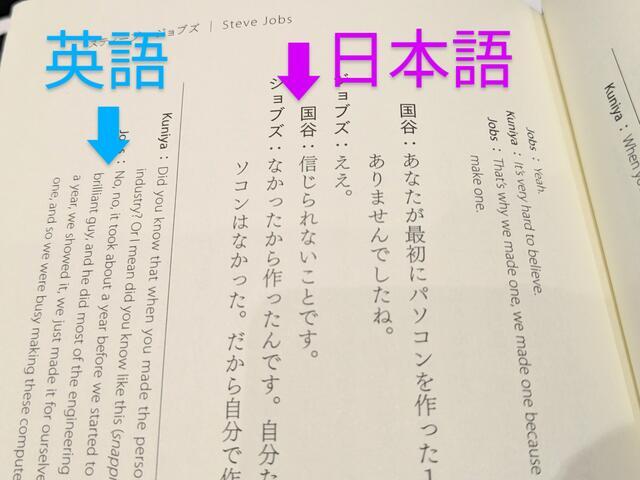 英語
日本語
スティーブ・ジョブズ | Steve Jobs
Jobs : Yeah.
Kuniya : It's very hard to believe.
Jobs : That's why we made one, we made one because
make one.
国谷：あなたが最初にパソコンを作った
ありませんでしたね。
ジョブズ：ええ。
国谷：信じられないことです。
ジョブズ：なかったから作ったんです。自分
ソコンはなかった。だから自分で作
Kuniya : Did you know that when you made the
industry? Or I mean did you know like this
Jobs : No, no, it took about a year before we started to
brilliant guy, and he did most of the engineering
a year, we showed it, we just made it for
one, and so we were busy making these
Kuniya : When